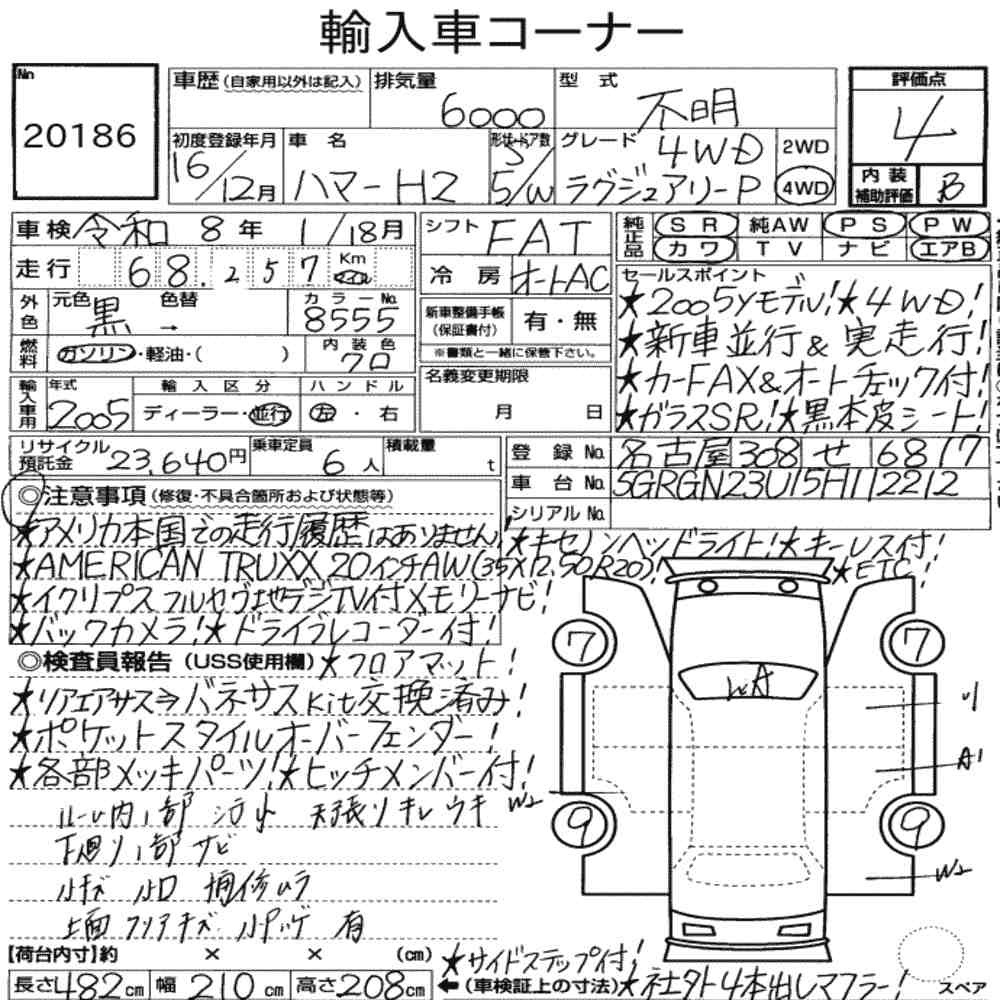 輸入車コーナー
No
20186
車歴(自家用以外は記入)
排気量
6000
型式
不明
評価点
4
内装補助評価
B
初度登録年月
16/12月
車名
ハマーH2
形状・ドア数
5/W
グレード
4WD
ラグジュアリーP
2WD
4WD
車検 令和 8年 1/18月
シフト
FAT
純正品
SR 純AW PS PW
カワ TV ナビ エアB
走行 68.257 Km
冷房
オートAC
セールスポイント
★2005yモデル!★4WD!
★新車並行&実走行!
★カーFAX&オートチェック付!
★ガラスSR!★黒本皮シート!
外色
元色 黒 → 色替
カラーNo.
8555
新車整備手帳
(保証書付)
有・無
※書類と一緒に保管下さい。
燃料
ガソリン・軽油・( )
内装色
クロ
名義変更期限
月 日
輸入車用
年式
2005
輸入区分
ディーラー・並行
ハンドル
左・右
リサイクル預託金 23,640円
乗車定員
6人
積載量
t
登録No.
名古屋 308 せ 6817
車台No.
5GRGN23U15H112212
シリアルNo.
◎注意事項(修復・不具合箇所および状態等)
★アメリカ本国での走行履歴はありません!
★キセノンヘッドライト!★キーレス付!
★AMERICAN TRUXX 20インチAW(35X12.50R20)!
★ETC!
★イクリプスフルセグ地デジTV付メモリーナビ!
★バックカメラ!★ドライブレコーダー付!
◎検査員報告(USS使用欄)★フロアマット!
★リアエアサス⇒バネサスKit交換済み!
★ポケットスタイルオーバーフェンダー!
★各部メッキパーツ!★ヒッチメンバー付!
内 部 天張りキレ ウキ
下廻り 部サビ
小キズ 補修ムラ
上面 フリアキズ 有
7
7
9
9
WA
A1
W2
W2
【荷台内寸】約 × × (cm)
★サイドステップ付!
長さ482cm 幅210cm 高さ208cm
←(車検証上の寸法)
★社外4本出しマフラー!
スペア